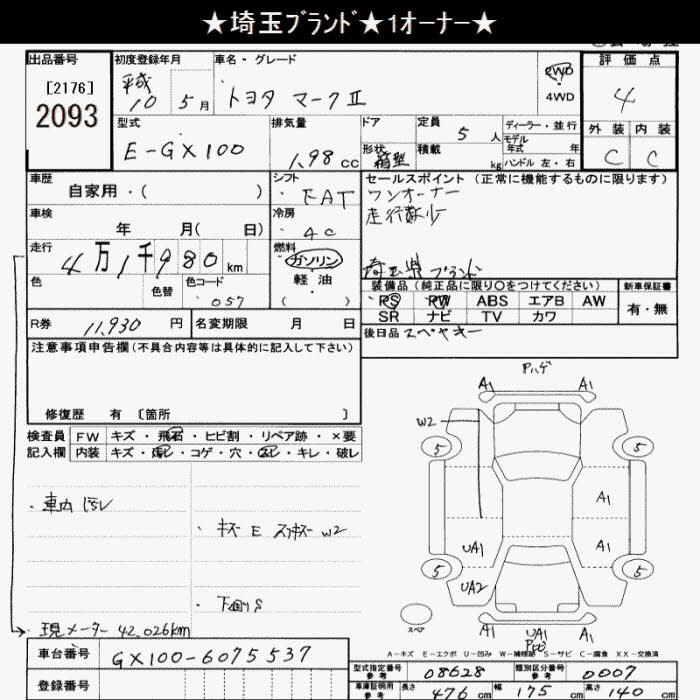 ★埼玉ﾌﾞﾗﾝﾄﾞ★1オーナー★
出品番号
[2176]
2093
初度登録年月
平成
10 5 月
車名・グレード
トヨタ マークⅡ
2WD
4WD
評価点
4
外装 内装
C C
型式
E-GX100
排気量
1.98 cc
ドア
形状
箱型
定員
5 人
積載
kg
ディーラー・並行
モデル
年式 年
ハンドル 左・右
車歴
自家用・( )
シフト
FAT
セールスポイント (正常に機能するものに限ります)
ワンオーナー
走行歓少
埼玉県ブランド
車検
年 月( 日)
冷房
AC
走行
4万1千980 km
燃料
ガソリン
軽油
( )
色
色替
色コード
057
装備品(純正品に限り〇をつけてください)
PS PW ABS エアB AW
SR ナビ TV カワ
新車保証書
有・無
R券
11,930 円
名変期限 月 日
後日品 スペヤキー
注意事項申告欄(不具合内容等は具体的に記入して下さい)
修復歴 有 [箇所 ]
検査員
記入欄
FW キズ・飛石・ヒビ割・リペア跡・×要
内装 キズ・汚レ・コゲ・穴・スレ・キレ・破レ
・車内汚レ
・キズ E スリキズ W2
・下廻りS
現メーター 42,026km
Pハゲ
A1 A1
W2
5 5
A1
UA1 A1
5 5
UA2
スペア
A1 UA1 A1
A-キズ E-エクボ U-凹み W-補修跡 S-サビ C-腐食 XX-交換済
車台番号
GX100-6075537
登録番号
型式指定番号
参考
08628
類別区分番号
参考
0007
車庫証明用
参考
長さ
476 cm
幅
175 cm
高さ
140 cm